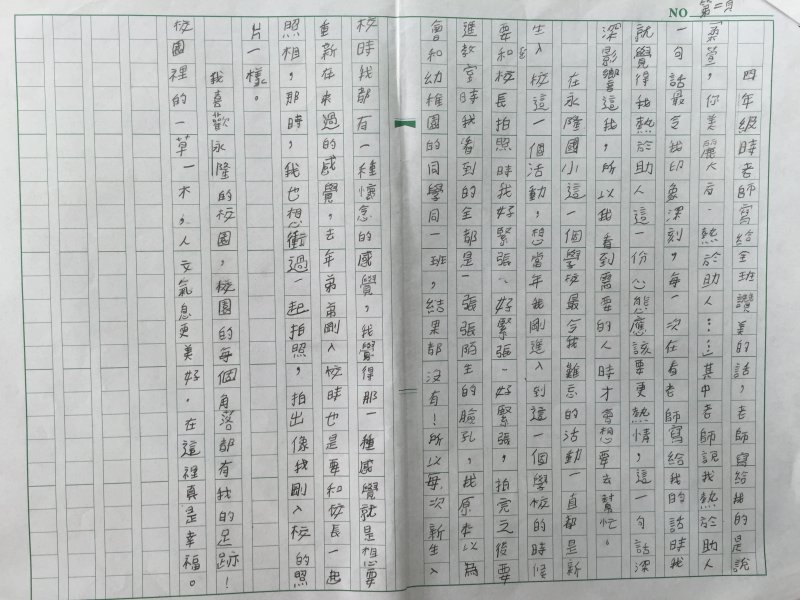 NO 第二頁
四年級時老師寫給全班讚美的話，老師寫給我的是說
「柔萱，你美麗人有．熱於助人……」其中老師說我熱於助人
一句話最令我印象深刻，每一次在看老師寫給我的話時我
就覺得我熱於助人這一份心態應該要更熱情，這一句話深
深影響這我，所以我看到需要的人時才會想要去幫忙。
在永隆國小這一個學校最令我難忘的活動一直都是新
生入校這一個活動，想當年我剛進入到這一個學校的時候
要和校長拍照時我好緊張、好緊張、好緊張，拍完之後要
進教室時我看到的全都是一張張陌生的臉孔，我原本以為
會和幼稚園的同學同一班，結果都沒有！所以每次新生入
校時我都有一種懷念的感覺，我覺得那一種感覺就是想要
重新在來過的感覺，去年弟弟剛入校時也是要和校長一起
照相，那時，我也想衝過一起拍照，拍出像我剛入校的照
片一樣。
我喜歡永隆的校園，校園的每個角落都有我的足跡！
校園裡的一草一木，人文氣息更美好．在這裡真是幸福。